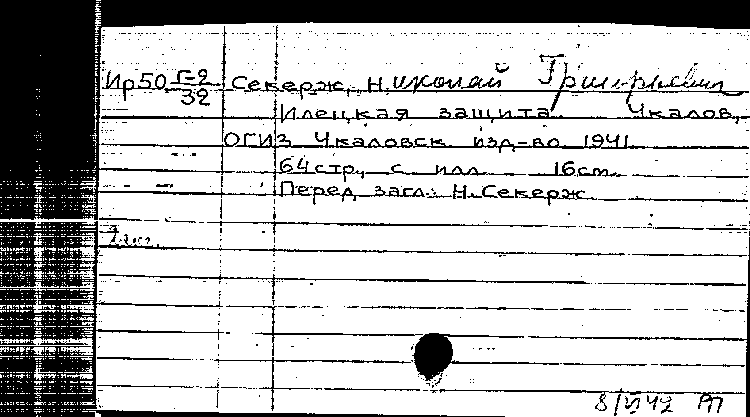 Ир50 Г-2/32 Секерж, Николай Григорьевич
Илецкая защита. Чкалов,
ОГИЗ Чкаловск. изд-во 1941.
64стр., с илл. 16см.
Перед загл.: Н.Секерж
8/VI 42 РП